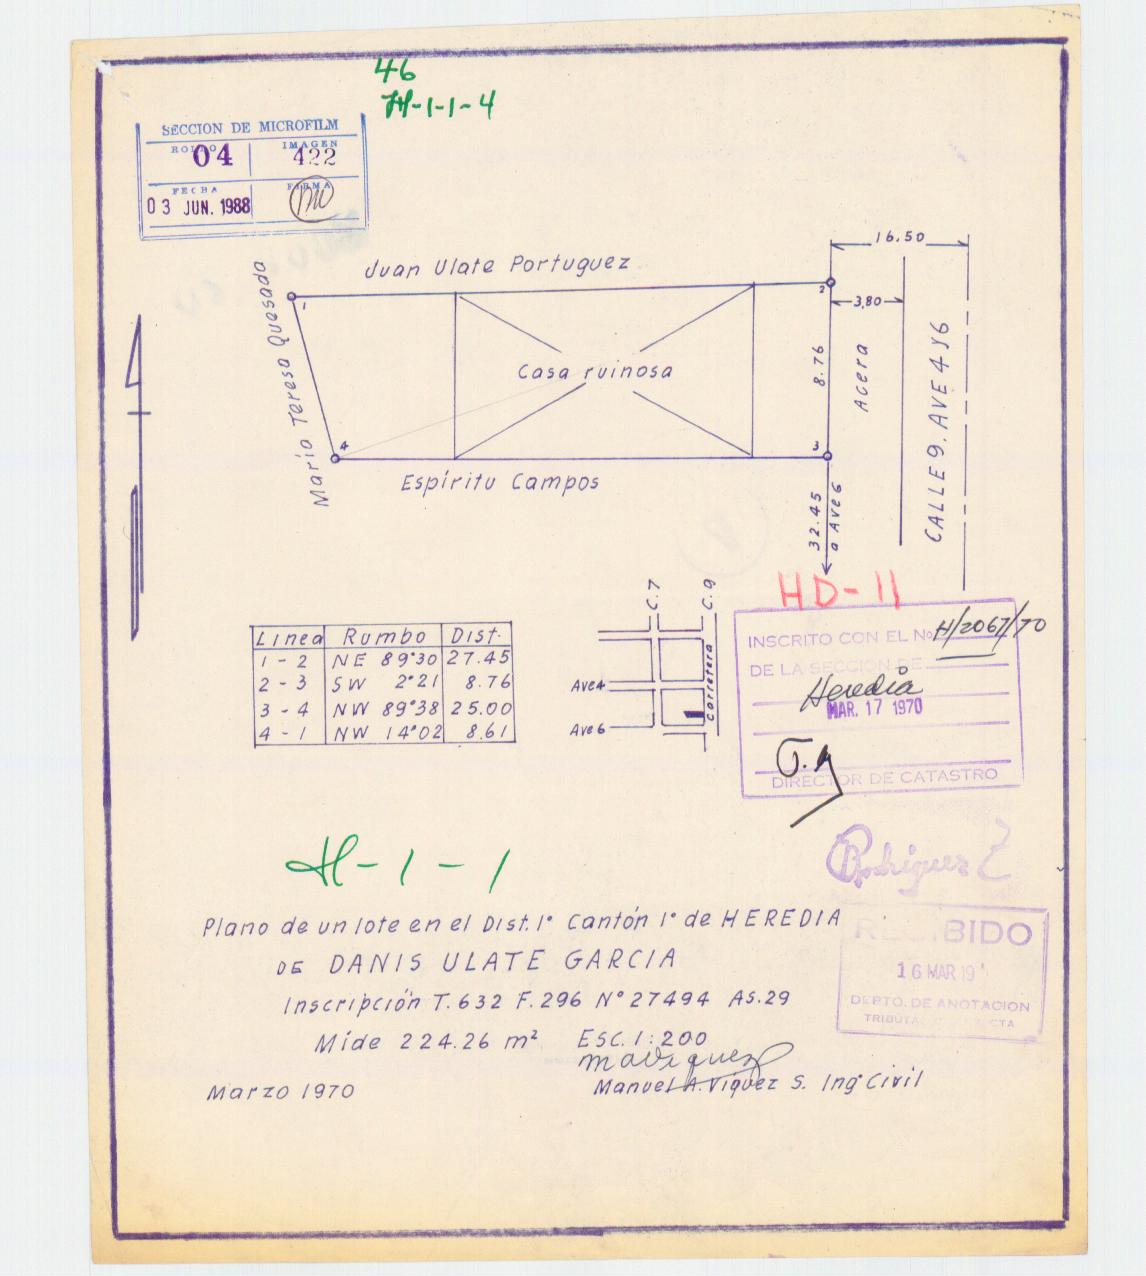 46
H-1-1-4
SECCION DE MICROFILM
ROLLO 04 IMAGEN 422
FECHA 03 JUN. 1988 FIRMA
16.50
Juan Ulate Portuguez
1
2
3.80
Mario Teresa Quesada
Casa ruinosa
8.76
Acera
CALLE 9. AVE 4 y 6
4
3
Espíritu Campos
32.45
a Ave 6
HD-11
Linea Rumbo Dist.
1 - 2 NE 89°30 27.45
2 - 3 SW 2°21 8.76
3 - 4 NW 89°38 25.00
4 - 1 NW 14°02 8.61
C.7
C.9
Ave 4
Ave 6
Carretera
INSCRITO CON EL No. H/2067/70
DE LA SECCION DE
Heredia
MAR. 17 1970
DIRECTOR DE CATASTRO
H-1-1
Rodríguez Z
Plano de un lote en el Dist. 1° Cantón 1° de HEREDIA
DE DANIS ULATE GARCIA
Inscripción T.632 F.296 N° 27494 AS.29
Mide 224.26 m² ESC. 1:200
Marzo 1970
Manuel A. Víquez S. Ing° Civil
RECIBIDO
16 MAR 19
DEPTO. DE ANOTACION